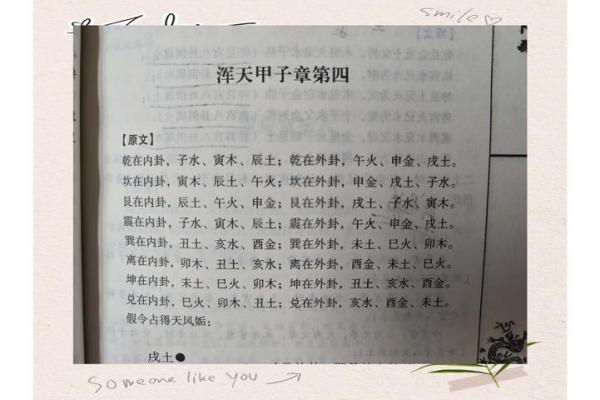 smile
浑天甲子章第四
【原文】
乾在内卦，子水、寅木、辰土；乾在外卦，午火、申金、戌土。
坎在内卦，寅木、辰土、午火；坎在外卦，申金、戌土、子水。
艮在内卦，辰土、午火、申金；艮在外卦，戌土、子水、寅木。
震在内卦，子水、寅木、辰土；震在外卦，午火、申金、戌土。
巽在内卦，丑土、亥水、酉金；巽在外卦，未土、巳火、卯木。
离在内卦，卯木、丑土、亥水；离在外卦，酉金、未土、巳火。
坤在内卦，未土、巳火、卯木；坤在外卦，丑土、亥水、酉金。
兑在内卦，巳火、卯木、丑土；兑在外卦，亥水、酉金、未土。
假令占得天风姤：
戌土●
someone like you